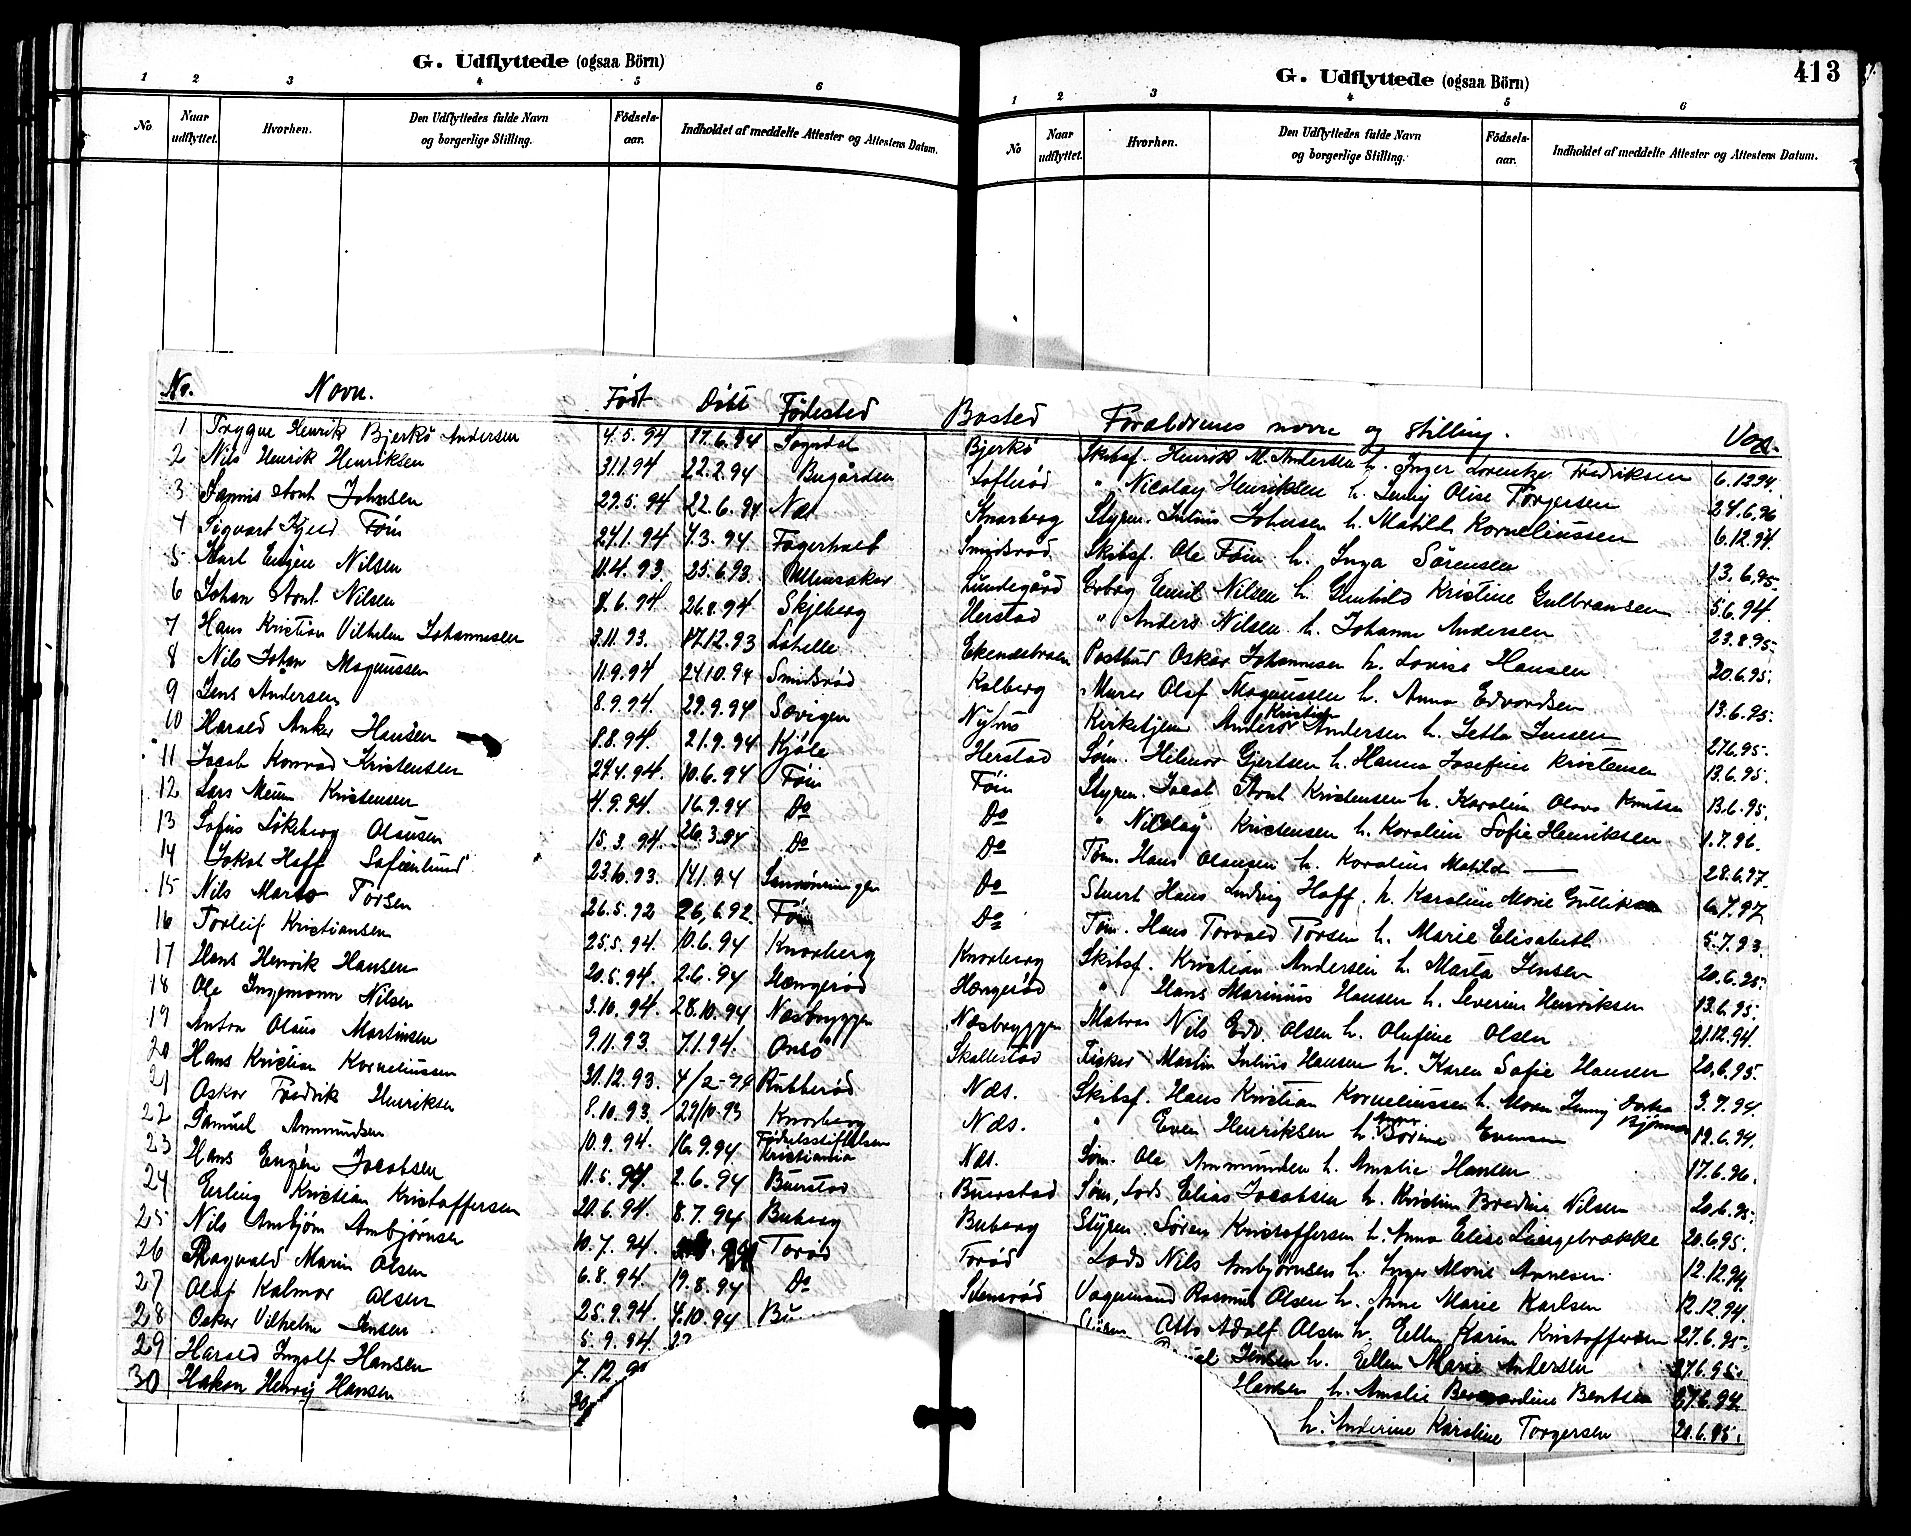 G. Udflyttede (ogsaa Börn)
1 2 3 4 5 6
No. Naar udflyttet. Hvorhen. Den Udflyttedes fulde Navn og borgerlige Stilling. Födsels-aar. Indholdet af meddelte Attester og Attestens Datum.
G. Udflyttede (ogsaa Börn)
413
1 2 3 4 5 6
No Naar udflyttet. Hvorhen. Den Udflyttedes fulde Navn og borgerlige Stilling. Födsels-aar. Indholdet af meddelte Attester og Attestens Datum.
No. Navn. Født Døbt Fødested Bosted Forældrenes navne og stilling. Vac.
1 Trygve Henrik Bjerkø Andersen 4.5.94 17.6.94 Sogndal Bjerkø Skibsf. Henrik M. Andersen h. Inger Lorentze Fredriksen 6.12.94.
2 Nils Henrik Henriksen 31.1.94 22.2.94 Bugården Loflerød " Nicolay Henriksen h. Jenny Olise Torgersen 24.6.96
3 Arnt Johnsen 29.5.94 22.6.94 Næs Knarberg Styrm. Julius Johnsen h. Matilde Korneliussen 6.12.94.
4 Sigvart Kjeld Føin 24.1.94 4.3.94 Fagerholt Smidsrød Skibsf. Ole Føin h. Inga Sørensen 13.6.95.
5 Karl Eugen Nilsen 11.4.93. 25.6.93. Ullensaker Lundegård Emil Nilsen h. Gunhild Kristine Gulbransen 5.6.94.
6 Johan Arnt Nilsen 8.6.94. 26.8.94 Skjeberg Herstad " Anders Nilsen h. Johanne Andersen 23.8.95.
7 Hans Kristian Vilhelm Johannessen 3.11.93. 17.12.93 Lahelle Ekenesbroen Postbud Oskar Johannesen h. Lovise Hansen 20.6.95.
8 Nils Johan Magnussen 11.9.94 24.10.94 Smidsrød Kolberg Murer Olaf Magnussen h. Anna Edvardsen 13.6.95.
9 Jens Andersen 8.9.94. 29.9.94 Sevigen Kirketjener Anders Kristian Andersen h. Jensen 27.6.95.
10 Harald Anker Hansen 8.8.94. 21.9.94 Kjøle Herstad Søm. Helmer Gjertsen h. Hanna Josefine Kristensen 13.6.95.
11 Jacob Konrad Kristensen 24.4.94. 10.6.94 Føin Føin Styrm. Jacob Arnt Kristensen h. Karoline Olava Knutsen 13.6.95.
12 Lars Kristensen 4.9.94. 16.9.94 Do Do " Nicolay Kristensen h. Karoline Sofie Henriksen 1.7.96.
13 Sofus Løkeberg Olausen 15.3.94. 26.3.94 Do Do Tøm. Hans Olausen h. Karoline Matilde — 28.6.97.
14 Jokal Hoff 23.10.93. 14.1.94 Do Stuert Hans Ludvig Hoff. h. Karoline Marie Gulliksen 6.7.97
15 Nils Torsen 26.5.92 26.6.92 Føin Do Tøm. Hans Torvald Torsen h. Marie Elisabeth 5.7.93.
16 Torleif Kristiansen 25.5.94. 10.6.94 Knarberg Knarberg Skibsf. Kristian Andersen h. Marta Jensen 20.6.95.
17 Hans Henrik Hansen 20.5.94. 2.6.94 Hængerød Hængerød " Hans Marinius Hansen h. Severine Henriksen 13.6.95.
18 Ole Ingemann Nilsen 3.10.94. 28.10.94 Næsbryggen Næsbryggen Matros Nils Edv. Olsen h. Olufine Olsen 21.12.94.
19 Anton Olaus Martinsen 9.11.93. 7.1.94. Onsø Skallestad Fisker Martin Julius Hansen h. Karen Sofie Hansen 20.6.95.
20 Hans Kristian Korneliussen 31.12.93. 4/2-94 Rubberød Næs. Skibsf. Hans Kristian Korneliussen h. Maren Jenny Dortea Bjønnes 3.7.94.
21 Oskar Fredrik Henriksen 8.10.93. 29/10.93 Knarberg Næs. " Even Henriksen h. Anne Sørine Evensen 19.6.94.
22 Samuel Ammundsen 10.9.94. 16.9.94 Fødselsstiftelsen Kristiania Næs. Søm. Ole Ammundsen h. Amalie Hansen 17.6.96.
23 Hans Eugen Jacobsen 11.5.94. 2.6.94 Buerstad Buerstad Søm, Lods Elias Jacobsen h. Kristine Bredine Nilsen 20.6.95.
24 Erling Kristian Kristoffersen 20.6.94. 8.7.94 Buberg Buberg Styrm. Søren Kristoffersen h. Anna Elise Langebrække 20.6.95.
25 Nils Ambjørn Ambjørnsen 10.7.94. Torød Torød Lods Nils Ambjørnsen h. Inger Marie Arnesen 12.12.94.
26 Ragnvald Marin Olsen 6.8.94. 19.8.94 Do Stensrød Vognmand Rasmus Olsen h. Anne Marie Karlsen 12.12.94.
27 Olaf Kalmar Olsen 25.9.94. 4.10.94 Bu Otto Adolf Olsen h. Ellen Karine Kristoffersen 27.6.95.
28 Oskar Vilhelm Jensen 5.9.94. Jensen h. Ellen Marie Andersen 27.6.95.
29 Harald Ingolf Hansen 7.12.9 Hansen h. Amalie Bernardine Bentsen 27.6.94
30 Hakon Henry Hansen 30 h. Anderine Karoline Torgersen 20.6.95.